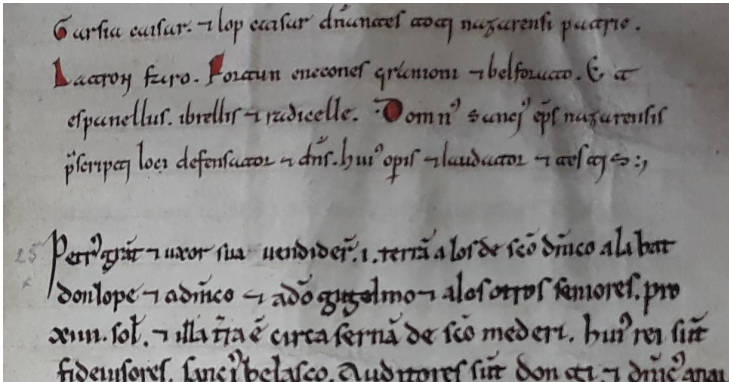 Garsia caisar. ⁊ lop caisar dn̄antes toti nazarensi patrie.
Latron faro. Fortun enecones grannoni ⁊ belforato. E
espanellus. ibrellis ⁊ radicelle. Domnꝰ sancjꝰ ep̄s nazarensis
p̄scripti loci defensator ⁊ dn̄s. huiꝰ opis ⁊ laudator ⁊ testis :,
25 Petrꝰ grāt ⁊ uxor sua uendider̄. i. terrā a los de sc̄o dn̄ico alabat
don lope ⁊ a dn̄ico ⁊ a dō gigelmo ⁊ a los otros seniores. pro
xiiii. sol̄. ⁊ illa tr̄a ē circa sernā de sc̄o mederi. huiꝰ rei sūt
fideiusores. sancjꝰ belasco. Auditores sūt don ⁊ dn̄icꝰ